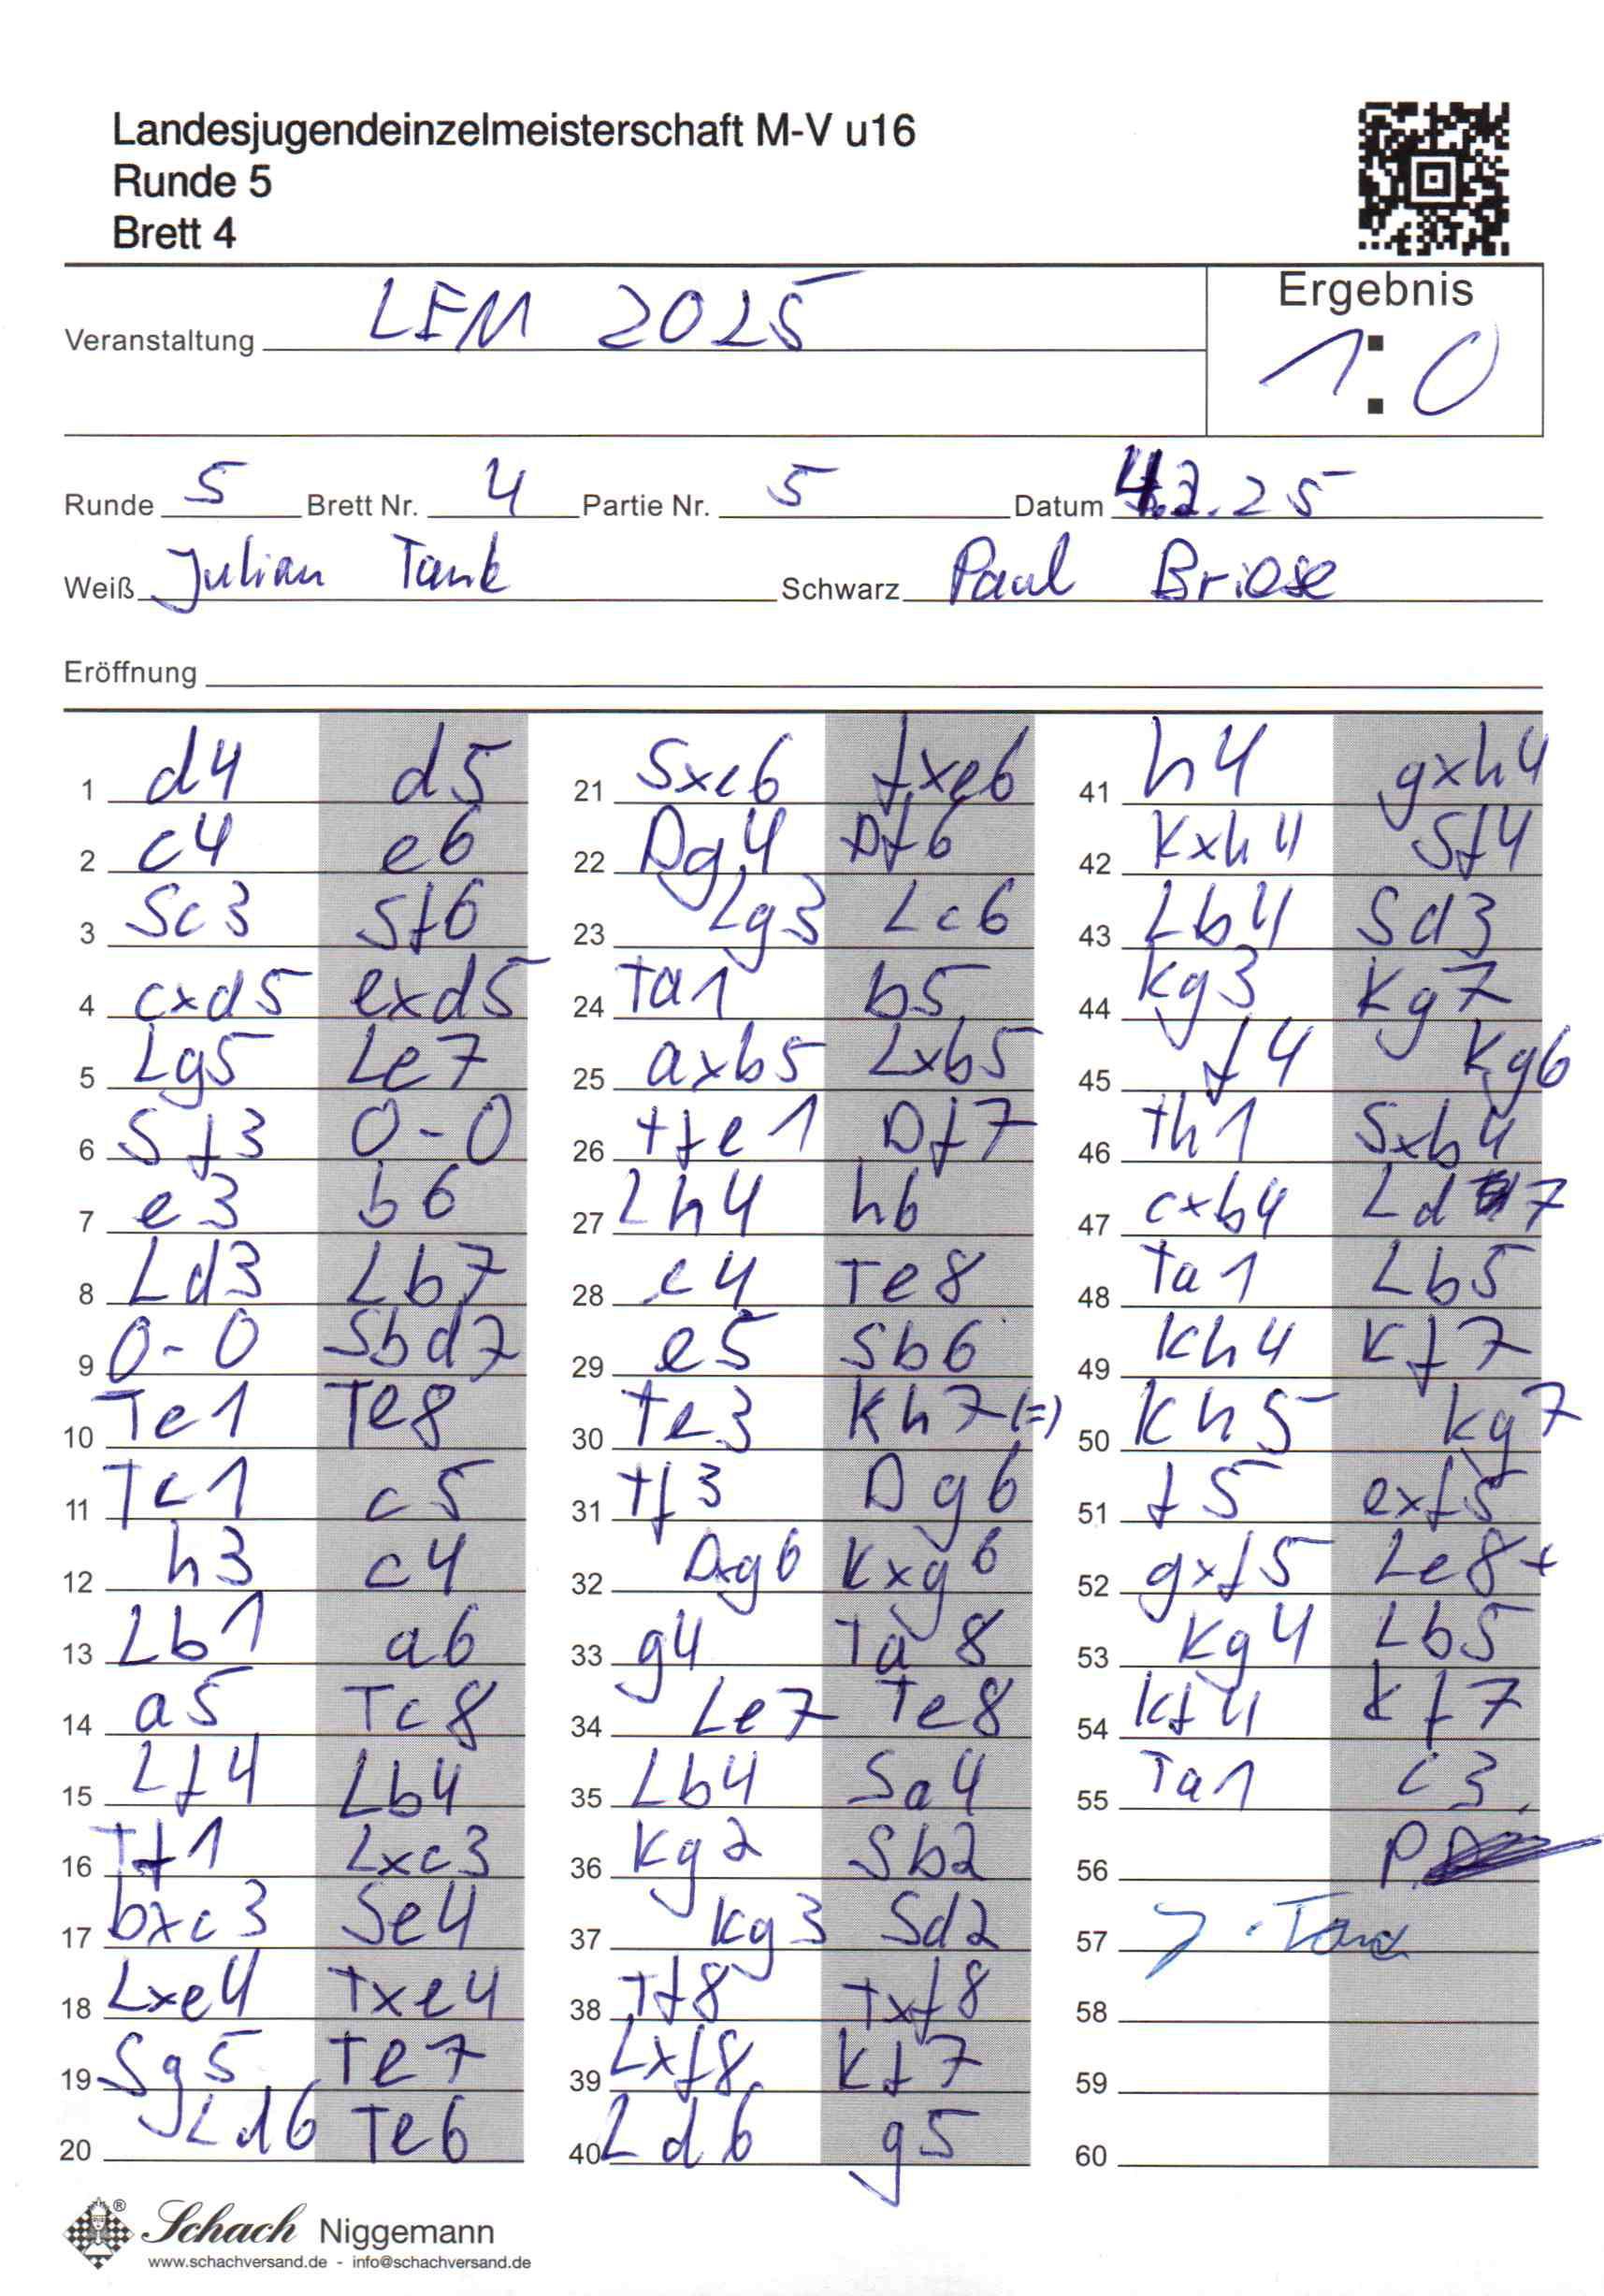 Landesjugendeinzelmeisterschaft M-V u16
Runde 5
Brett 4
Veranstaltung LEM 2025
Ergebnis
1:0
Runde 5 Brett Nr. 4 Partie Nr. 5 Datum 4.2.25
Weiß Julian Tank Schwarz Paul Briese
Eröffnung
1 d4 d5
2 c4 e6
3 Sc3 Sf6
4 cxd5 exd5
5 Lg5 Le7
6 Sf3 0-0
7 e3 b6
8 Ld3 Lb7
9 0-0 Sbd7
10 Te1 Te8
11 Tc1 c5
12 h3 c4
13 Lb1 a6
14 a5 Tc8
15 Lf4 Lb4
16 Tf1 Lxc3
17 bxc3 Se4
18 Lxe4 Txe4
19 Sg5 Te7
20 Ld6 Te6
21 Sxe6 fxe6
22 Dg4 Df6
23 Lg3 Lc6
24 Ta1 b5
25 axb5 Lxb5
26 Tfe1 Df7
27 Lh4 h6
28 e4 Te8
29 e5 Sb6
30 Te3 Kh7 (=)
31 Tf3 Dg6
32 Dxg6 Kxg6
33 g4 Ta8
34 Le7 Te8
35 Lb4 Sa4
36 Kg2 Sb2
37 Kg3 Sd2
38 Tf8 Txf8
39 Lxf8 Kf7
40 Ld6 g5
41 h4 gxh4
42 Kxh4 Sf4
43 Lb4 Sd3
44 Kg3 Kg7
45 f4 Kg6
46 Th1 Sxb4
47 cxb4 Ld7
48 Ta1 Lb5
49 Kh4 Kf7
50 Kh5 Kg7
51 f5 exf5
52 gxf5 Le8+
53 Kg4 Lb5
54 Kf4 Kf7
55 Ta1 c3
56 P.
57 J. Tank
58
59
60
Schach Niggemann
www.schachversand.de - info@schachversand.de